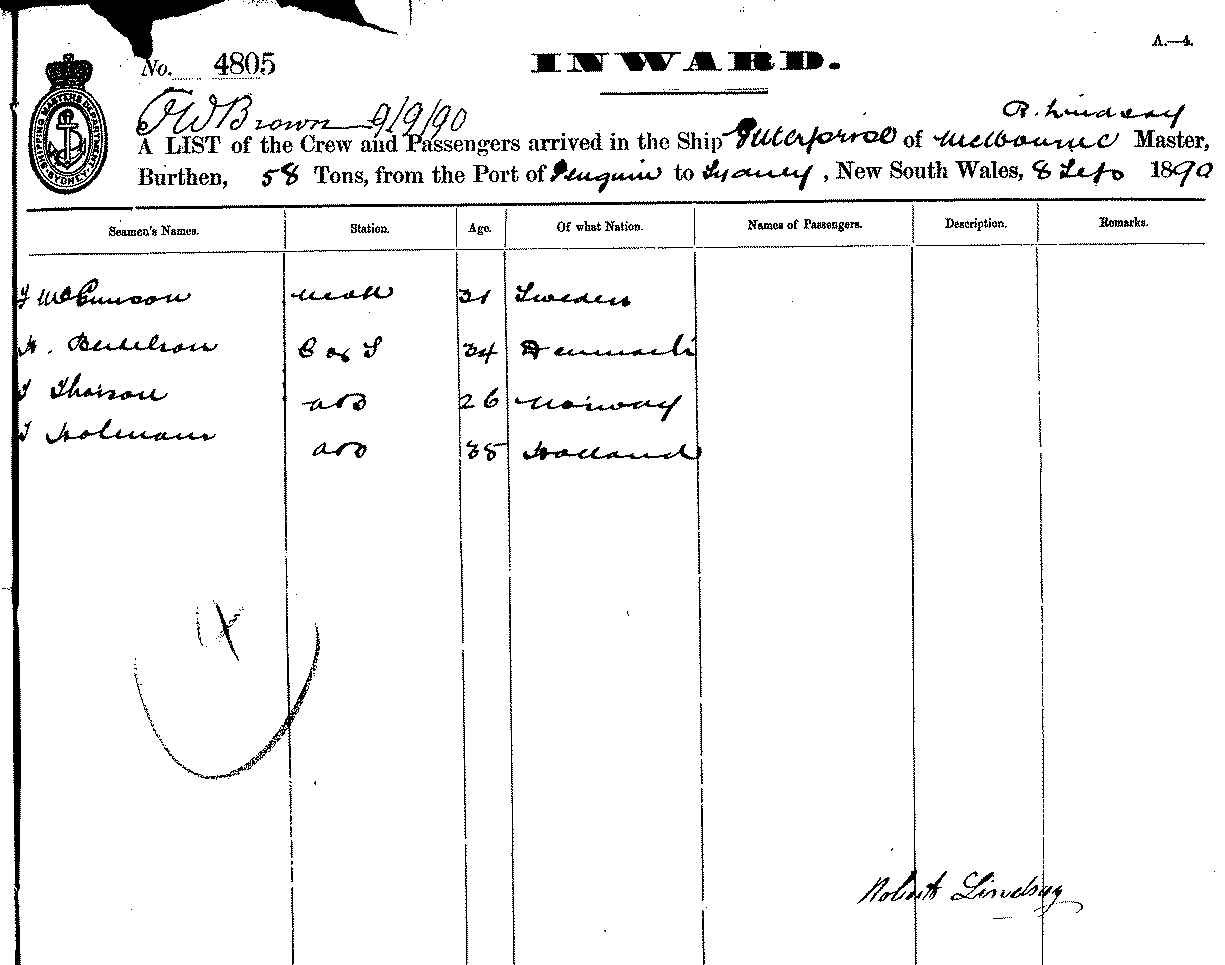 A.—4.
No. 4805
INWARD.
SHIPPING MASTERS DEPARTMENT SYDNEY
J W Brown 9/9/90
R. Lindsay
A LIST of the Crew and Passengers arrived in the Ship Enterprise of Melbourne Master,
Burthen, 58 Tons, from the Port of Penguin to Sydney, New South Wales, 8 Sep 1890
Seamen's Names. Station. Age. Of what Nation. Names of Passengers. Description. Remarks.
mate 31 Sweden
Bertelson 34 Denmark
Thorson AB 26 Norway
Holmann AB 35 Holland
Robert Lindsay